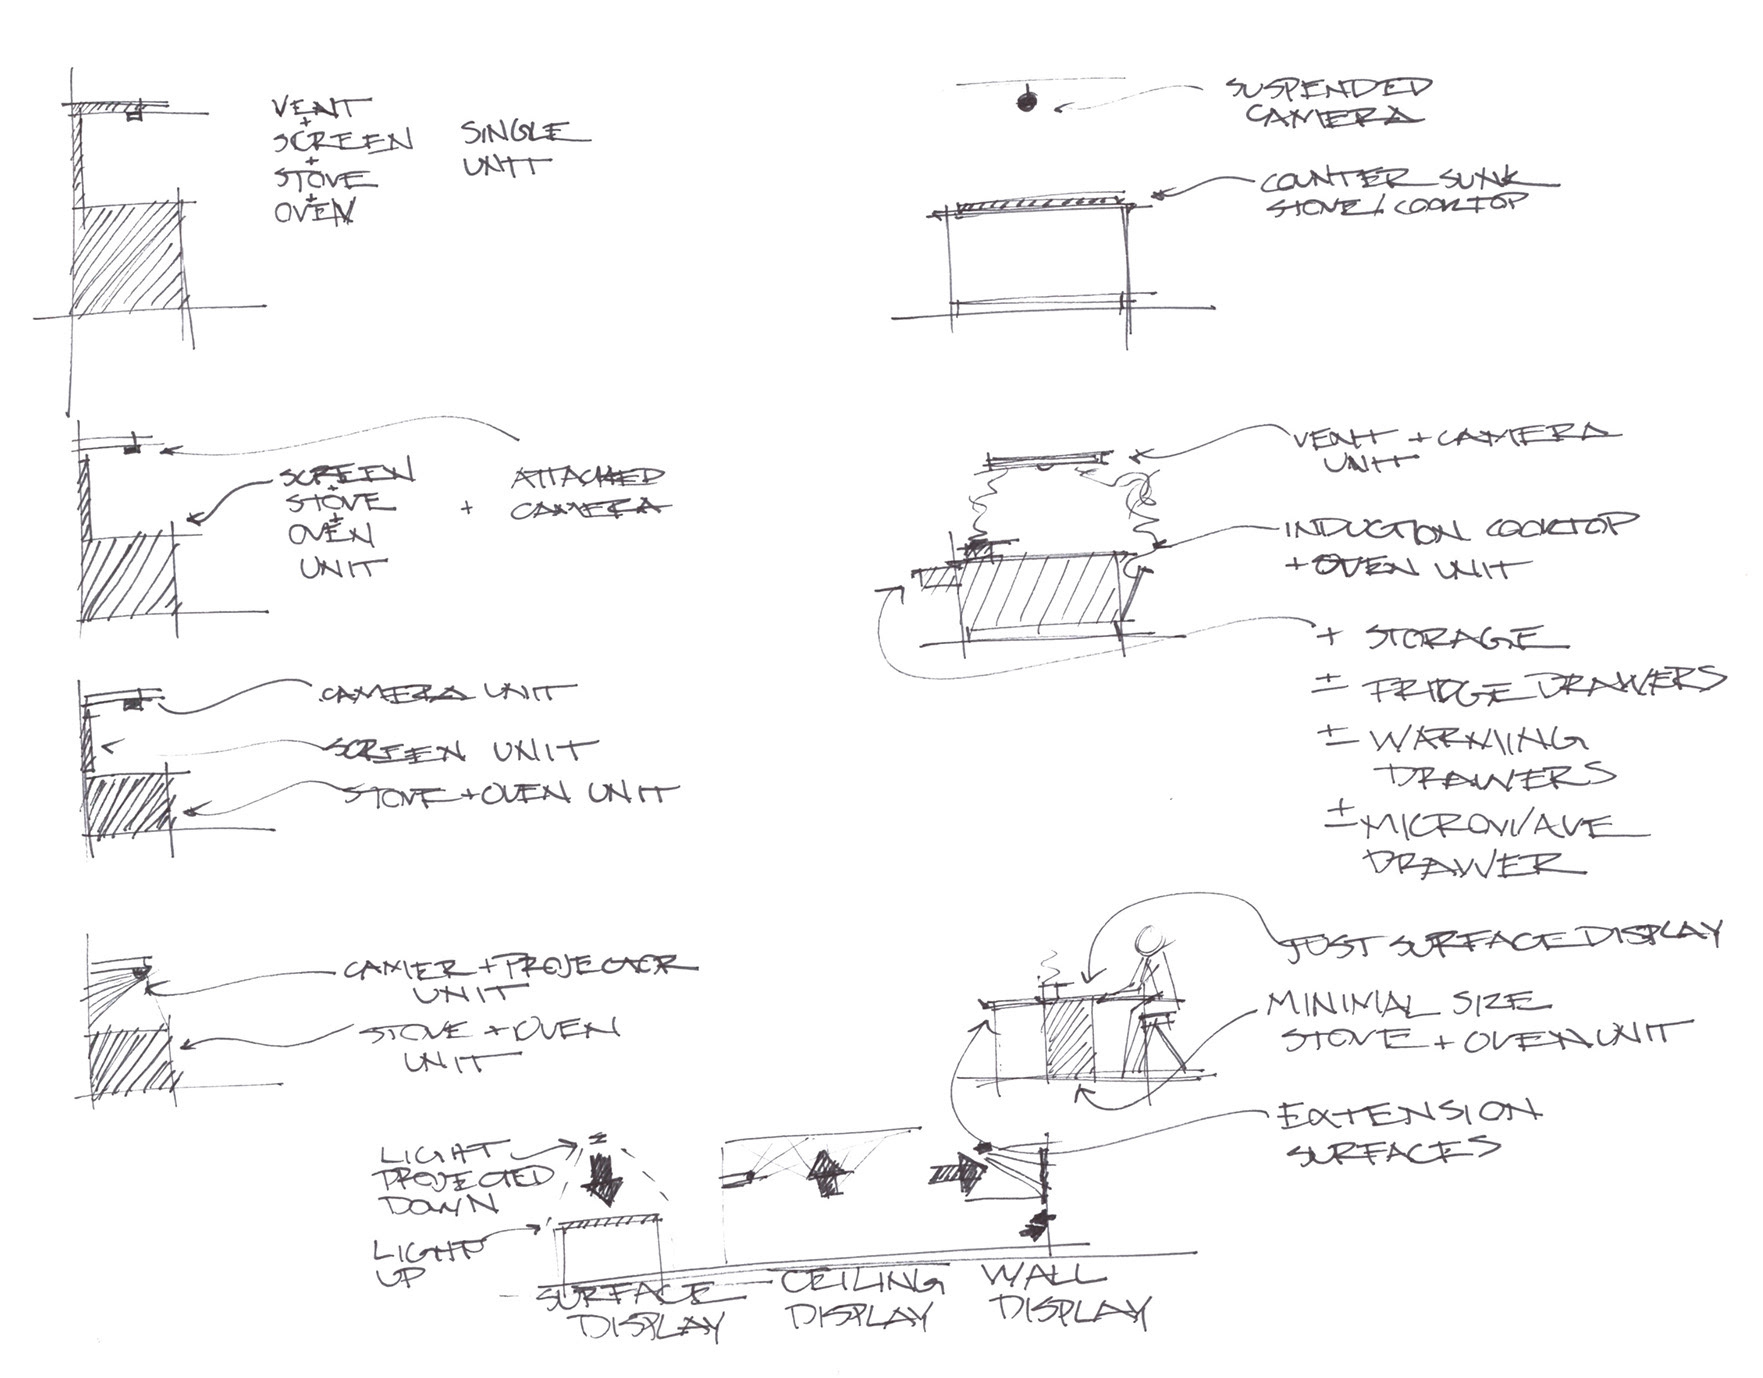 VENT
+
SCREEN
+
STOVE
+
OVEN
SINGLE
UNIT
SUSPENDED
CAMERA
COUNTER SUNK
STOVE/COOKTOP
SCREEN
+
STOVE
+
OVEN
UNIT
+
ATTACHED
CAMERA
VENT + CAMERA
UNIT
INDUCTION COOKTOP
+ OVEN UNIT
+ STORAGE
± FRIDGE DRAWERS
± WARMING
DRAWERS
± MICROWAVE
DRAWER
CAMERA UNIT
SCREEN UNIT
STOVE + OVEN UNIT
CAMER + PROJECTOR
UNIT
STOVE + OVEN
UNIT
JUST SURFACE DISPLAY
MINIMAL SIZE
STOVE + OVEN UNIT
EXTENSION
SURFACES
LIGHT
PROJECTED
DOWN
LIGHT
UP
SURFACE
DISPLAY
CEILING
DISPLAY
WALL
DISPLAY